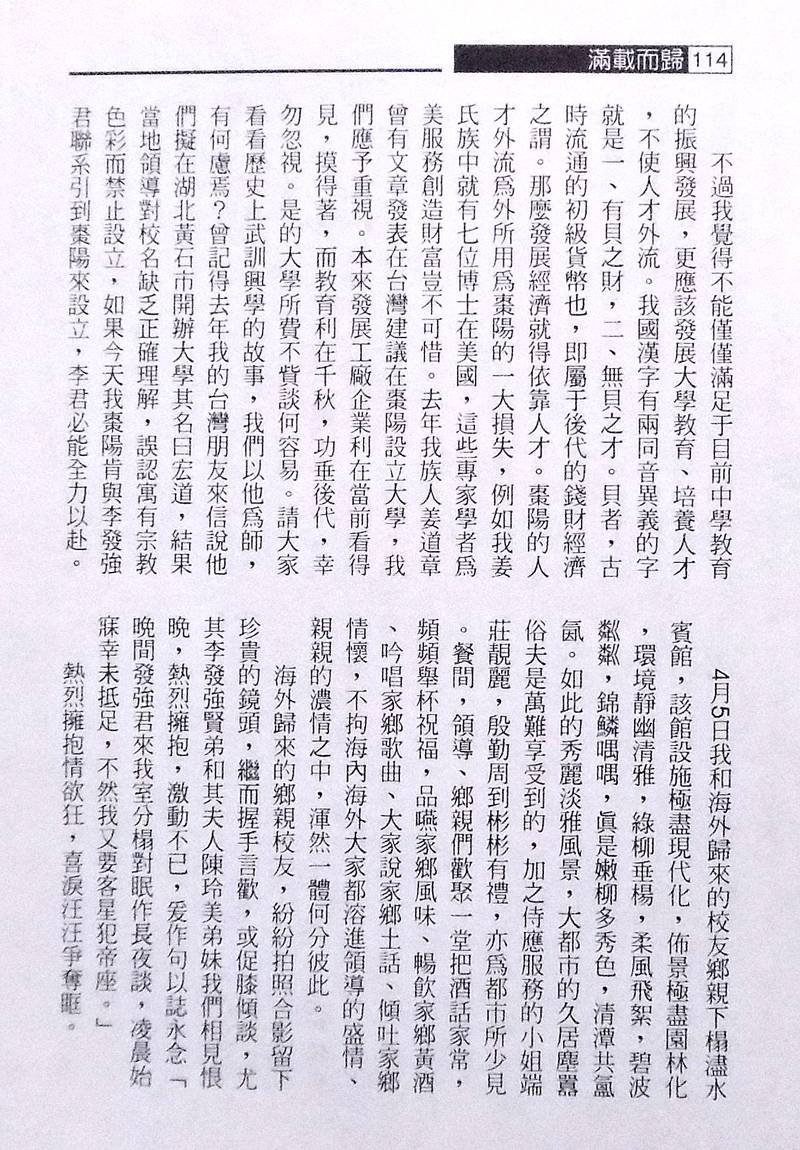 滿載而歸 114
不過我覺得不能僅僅滿足于目前中學教育
的振興發展，更應該發展大學教育、培養人才
，不使人才外流。我國漢字有兩同音異義的字
就是一、有貝之財，二、無貝之才。貝者，古
時流通的初級貨幣也，即屬于後代的錢財經濟
之謂。那麼發展經濟就得依靠人才。棗陽的人
才外流爲外所用爲棗陽的一大損失，例如我姜
氏族中就有七位博士在美國，這些專家學者爲
美服務創造財富豈不可惜。去年我族人姜道章
曾有文章發表在台灣建議在棗陽設立大學，我
們應予重視。本來發展工廠企業利在當前看得
見，摸得著，而教育利在千秋，功垂後代，幸
勿忽視。是的大學所費不貲談何容易。請大家
看看歷史上武訓興學的故事，我們以他爲師，
有何慮焉？曾記得去年我的台灣朋友來信說他
們擬在湖北黃石市開辦大學其名曰宏道，結果
當地領導對校名缺乏正確理解，誤認寓有宗教
色彩而禁止設立，如果今天我棗陽肯與李發強
君聯系引到棗陽來設立，李君必能全力以赴。
4月5日我和海外歸來的校友鄉親下榻濜水
賓館，該館設施極盡現代化，佈景極盡園林化
，環境靜幽清雅，綠柳垂楊，柔風飛絮，碧波
粼粼，錦鱗喁喁，眞是嫩柳多秀色，清潭共氳
氤。如此的秀麗淡雅風景，大都市的久居塵囂
俗夫是萬難享受到的，加之侍應服務的小姐端
莊靚麗，殷勤周到彬彬有禮，亦爲都市所少見
。餐間，領導、鄉親們歡聚一堂把酒話家常，
頻頻舉杯祝福，品嚥家鄉風味、暢飲家鄉黃酒
、吟唱家鄉歌曲、大家說家鄉土話、傾吐家鄉
情懷，不拘海內海外大家都溶進領導的盛情、
親親的濃情之中，渾然一體何分彼此。
海外歸來的鄉親校友，紛紛拍照合影留下
珍貴的鏡頭，繼而握手言歡，或促膝傾談，尤
其李發強賢弟和其夫人陳玲美弟妹我們相見恨
晚，熱烈擁抱，激動不已，爰作句以誌永念「
晚間發強君來我室分榻對眠作長夜談，凌晨始
寐幸未抵足，不然我又要客星犯帝座。」
熱烈擁抱情欲狂，喜淚汪汪爭奪眶。